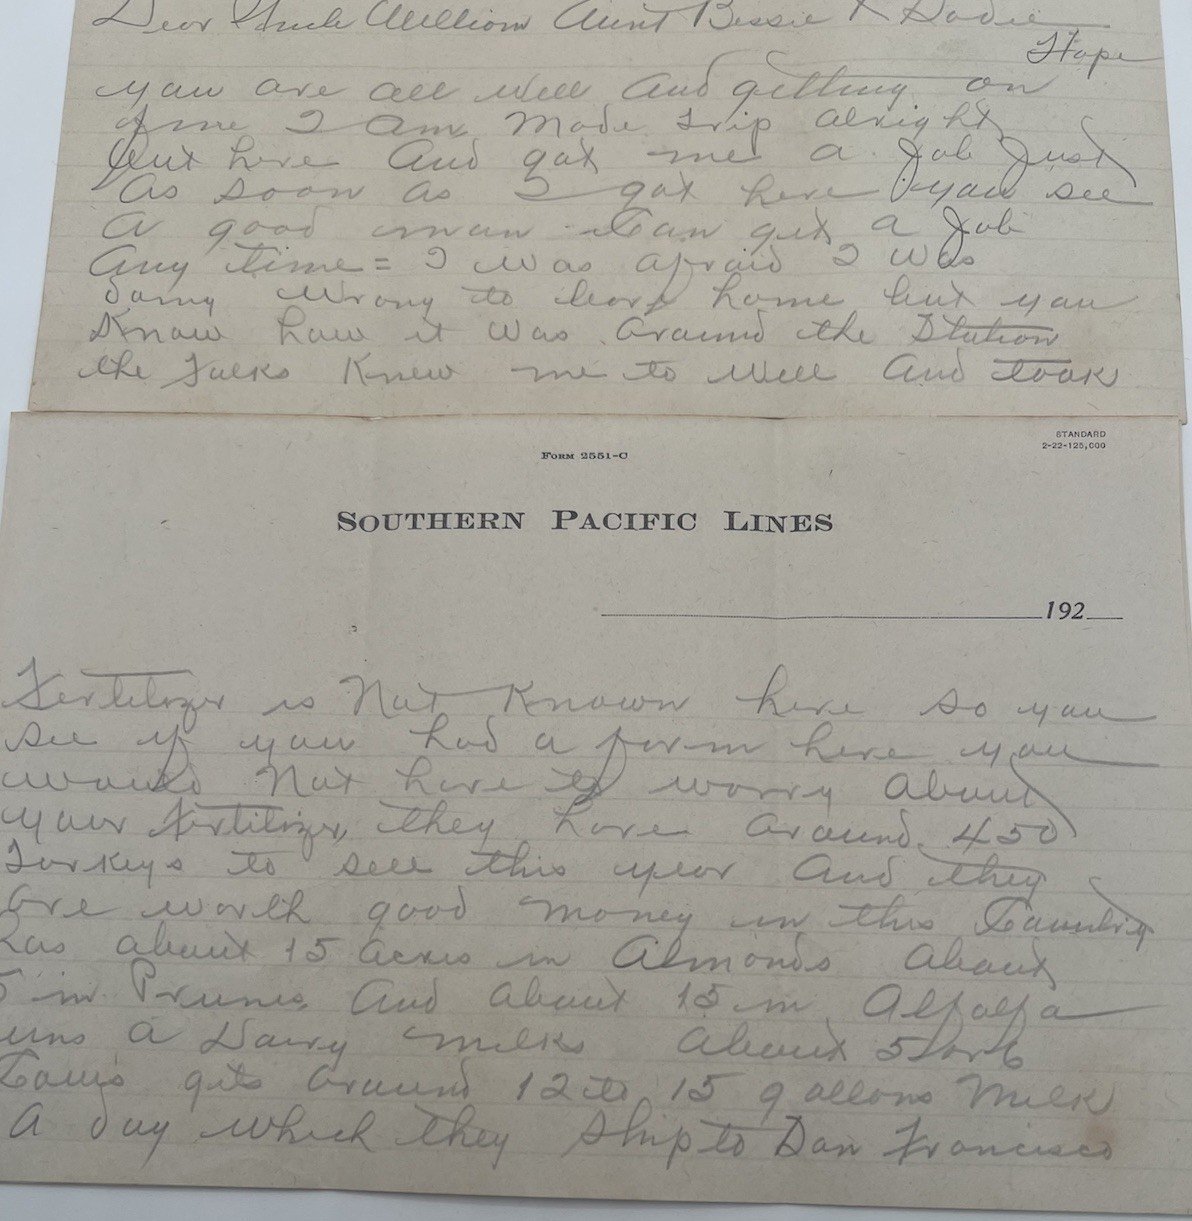 Dear Uncle William Aunt Bessie & Dodie
Hope
you are all well and getting on
fine I am made trip alright
out here and got me a Job Just
as soon as I got here you see
a good man can get a Job
any time = I was afraid I was
doing wrong to leave home but you
know how it was around the Station
the Folks knew me to well and took
STANDARD
2-22-125,000
FORM 2551-C
SOUTHERN PACIFIC LINES
192
Fertilizer is Not Known here so you
see if you had a farm here you
would Not have to worry about
your fertilizer they have around 450
Turkeys to sell this year and they
are worth good money in this Country
has about 15 acres in Almonds about
5 in Prunes and about 15 in Alfalfa
runs a Dairy milks about 5 or 6
Cows gets around 12 to 15 gallons milk
a day which they ship to San Francisco